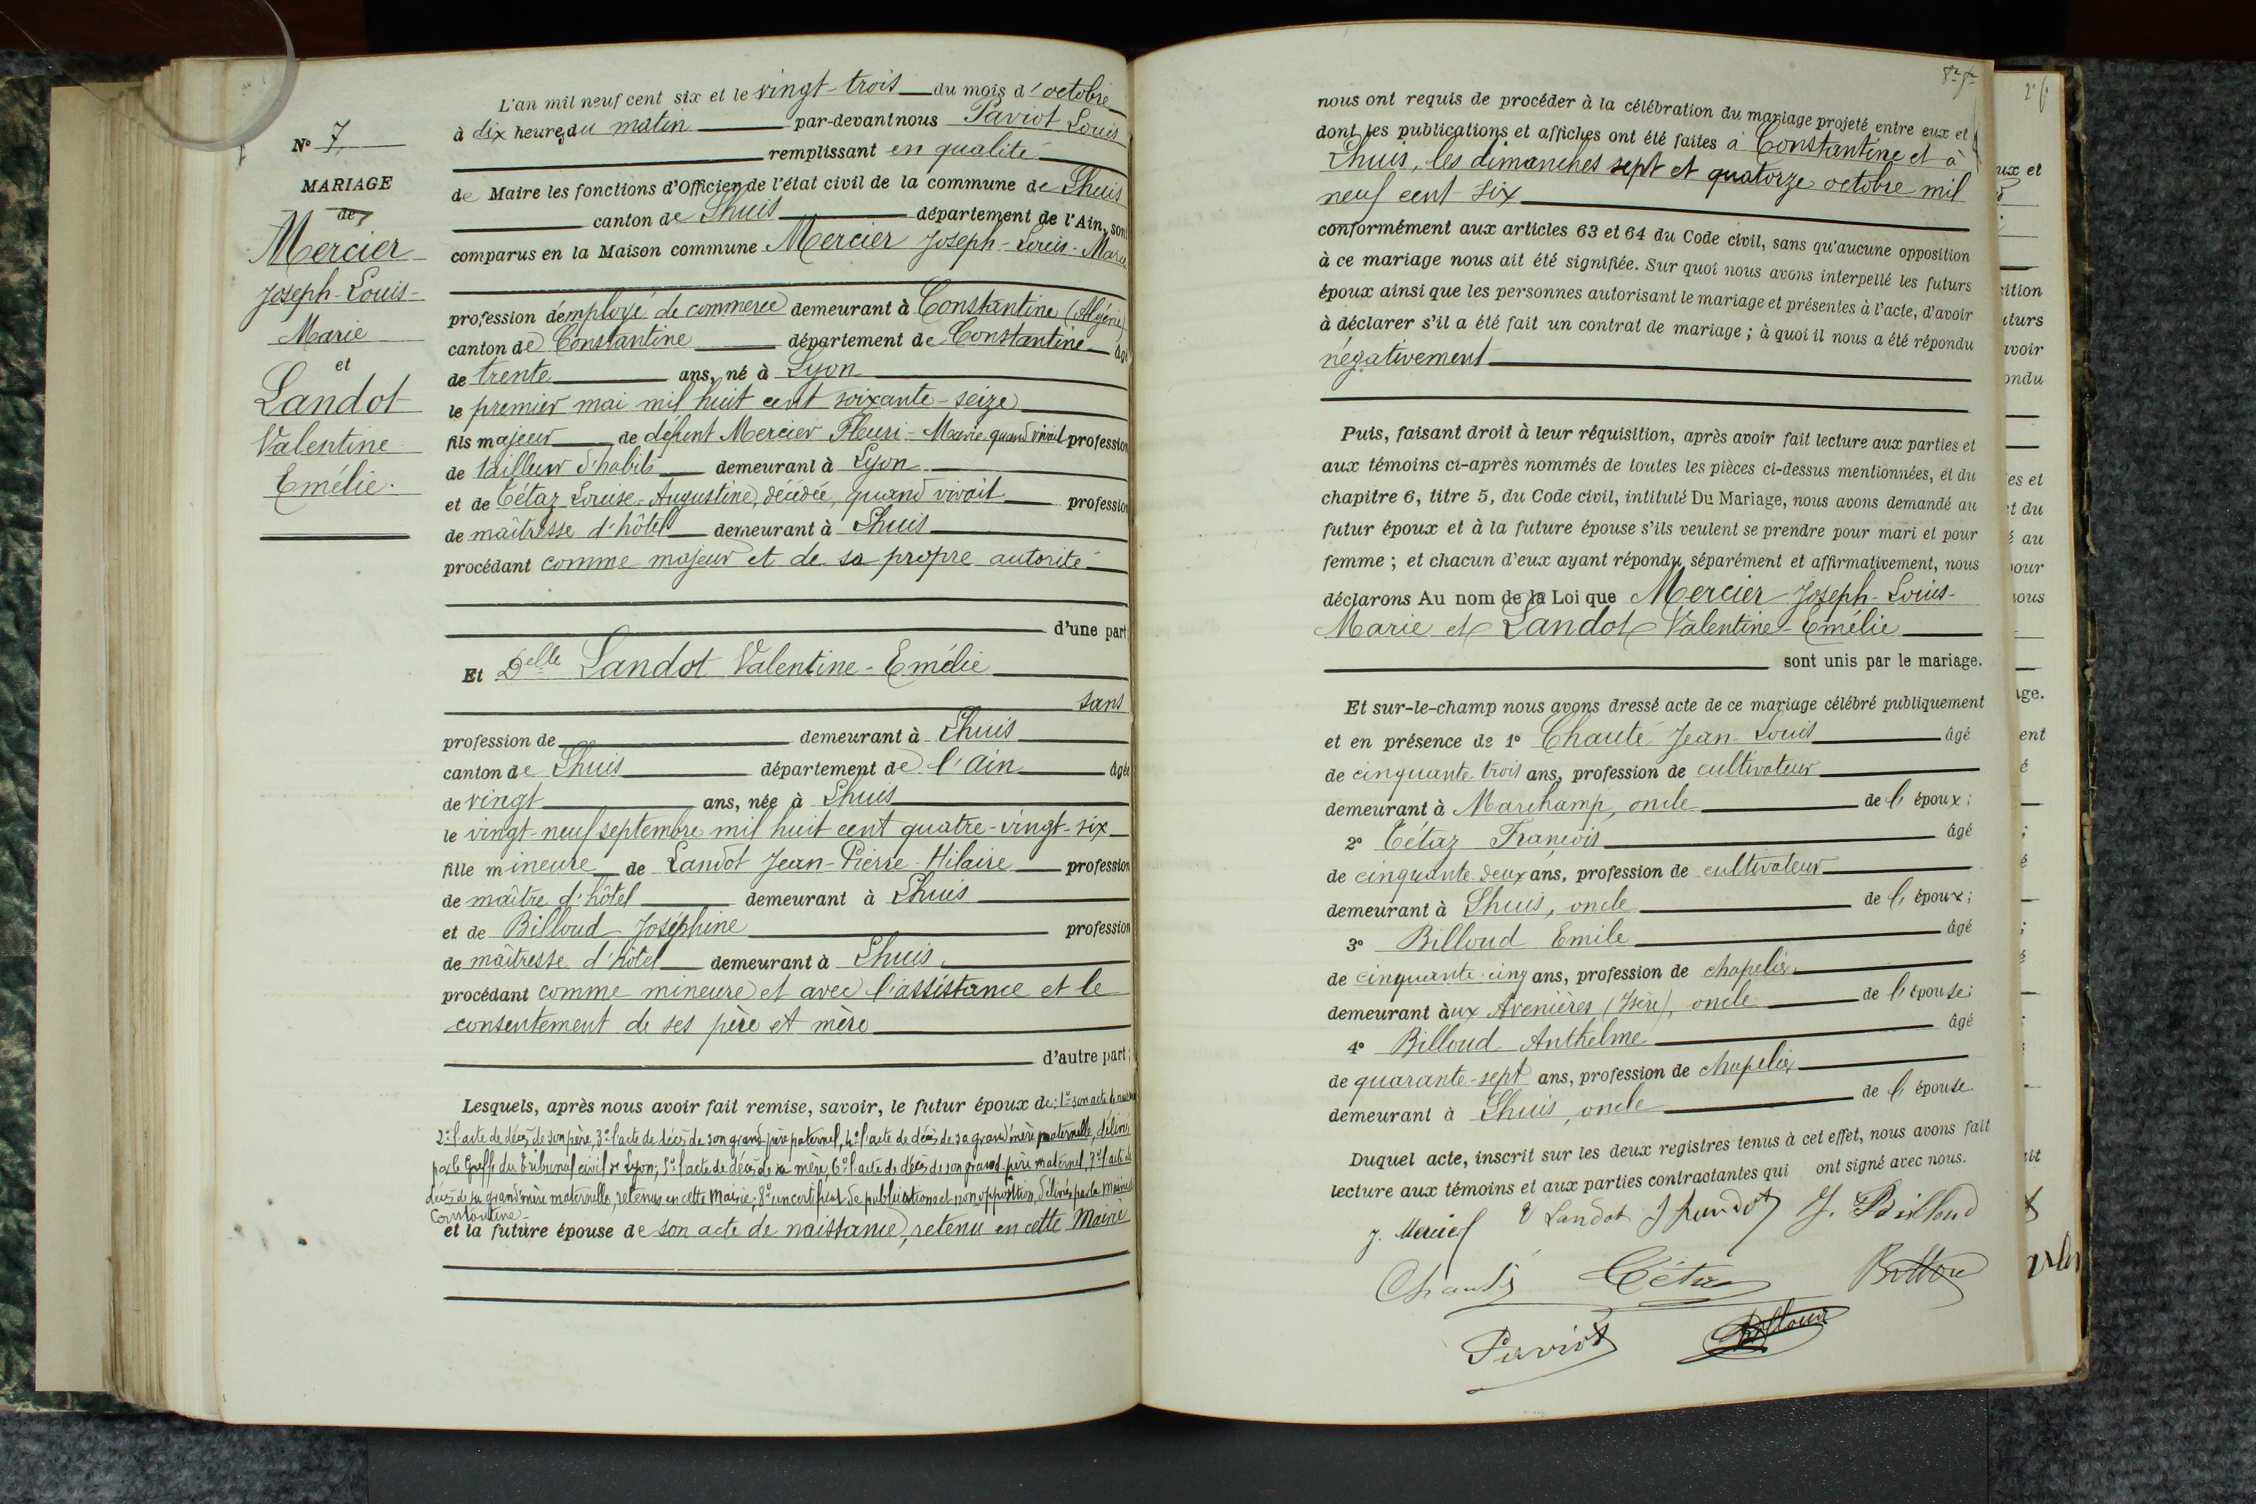 N° 7
MARIAGE
de
Mercier
Joseph-Louis-
Marie
et
Landot
Valentine
Emélie.
L'an mil neuf cent six et le vingt-trois du mois d'octobre
à dix heures du matin par-devant nous Paviot Louis
remplissant en qualité
de Maire les fonctions d'Officier de l'état civil de la commune de Lhuis
canton de Lhuis département de l'Ain, sont
comparus en la Maison commune Mercier Joseph-Louis-Marie
profession d'employé de commerce demeurant à Constantine (Algérie)
canton de Constantine département de Constantine âgé
de trente ans, né à Lyon
le premier mai mil huit cent soixante-seize
fils majeur de défunt Mercier Fleuri-Marie quand vivait profession
de tailleur d'habits demeurant à Lyon
et de Tétaz Louise-Augustine, décédée, quand vivait profession
de maîtresse d'hôtel demeurant à Lhuis
procédant comme majeur et de sa propre autorité
d'une part
Et Delle Landot Valentine-Emélie
sans
profession de demeurant à Lhuis
canton de Lhuis département de l'Ain âgée
de vingt ans, née à Lhuis
le vingt-neuf septembre mil huit cent quatre-vingt-six
fille mineure de Landot Jean-Pierre-Hilaire profession
de maître d'hôtel demeurant à Lhuis
et de Billoud Joséphine profession
de maîtresse d'hôtel demeurant à Lhuis,
procédant comme mineure et avec l'assistance et le
consentement de ses père et mère
d'autre part;
Lesquels, après nous avoir fait remise, savoir, le futur époux de: 1° son acte de naissance
2° l'acte de décès de son père, 3° l'acte de décès de son grand-père paternel, 4° l'acte de décès de sa grand'mère paternelle, délivrés
par le Greffe du tribunal civil de Lyon; 5° l'acte de décès de sa mère, 6° l'acte de décès de son grand-père maternel, 7° l'acte de
décès de sa grand'mère maternelle, retenus en cette Mairie; 8° un certificat de publications et non opposition, délivrés par la Mairie de
Constantine
et la future épouse de son acte de naissance, retenu en cette Mairie
nous ont requis de procéder à la célébration du mariage projeté entre eux et
dont les publications et affiches ont été faites à Constantine et à
Lhuis, les dimanches sept et quatorze octobre mil
neuf cent six
conformément aux articles 63 et 64 du Code civil, sans qu'aucune opposition
à ce mariage nous ait été signifiée. Sur quoi nous avons interpellé les futurs
époux ainsi que les personnes autorisant le mariage et présentes à l'acte, d'avoir
à déclarer s'il a été fait un contrat de mariage; à quoi il nous a été répondu
négativement
Puis, faisant droit à leur réquisition, après avoir fait lecture aux parties et
aux témoins ci-après nommés de toutes les pièces ci-dessus mentionnées, et du
chapitre 6, titre 5, du Code civil, intitulé Du Mariage, nous avons demandé au
futur époux et à la future épouse s'ils veulent se prendre pour mari et pour
femme; et chacun d'eux ayant répondu séparément et affirmativement, nous
déclarons Au nom de la Loi que Mercier Joseph-Louis-
Marie et Landot Valentine-Emélie
sont unis par le mariage.
Et sur-le-champ nous avons dressé acte de ce mariage célébré publiquement
et en présence de 1° Chauté Jean-Louis âgé
de cinquante trois ans, profession de cultivateur
demeurant à Marchamp, oncle de l'époux;
2° Tétaz François âgé
de cinquante-deux ans, profession de cultivateur
demeurant à Lhuis, oncle de l'époux;
3° Billoud Emile âgé
de cinquante-cinq ans, profession de chapelier
demeurant aux Avenières (Isère), oncle de l'épouse;
4° Billoud Anthelme âgé
de quarante-sept ans, profession de chapelier
demeurant à Lhuis, oncle de l'épouse
Duquel acte, inscrit sur les deux registres tenus à cet effet, nous avons fait
lecture aux témoins et aux parties contractantes qui ont signé avec nous.
J. Mercier V Landot J Landot J. Billoud
Chauté Tétaz Billoud
Paviot Billoud